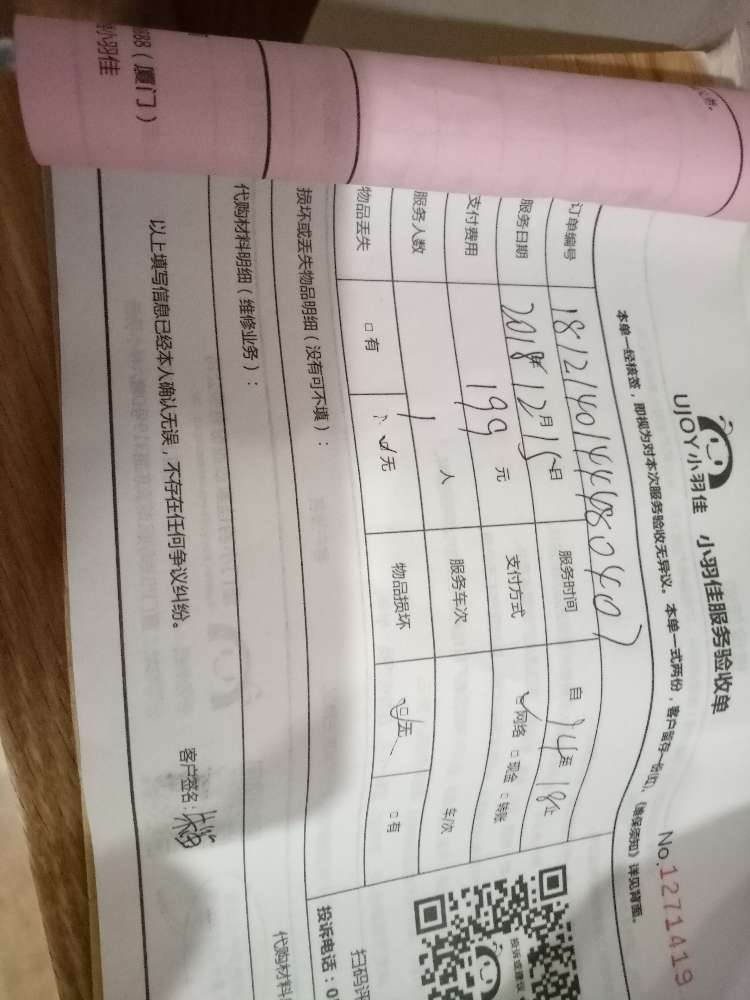 UJOY小羽佳 小羽佳服务验收单
No.1271419
本单一经核签，即视为对本次服务验收无异议。本单一式两份，客户留存一份(红)，《维保须知》详见背面。
订单编号 181214014448040407
服务日期 2018年12月15日 服务时间 自14至18止
支付费用 199元 支付方式 ☑网络 □现金 □转账
服务人数 1人 服务车次 车/次
物品丢失 □有 ☑无 物品损坏 ☑无 □有
损坏或丢失物品明细（没有可不填）：
代购材料明细（维修业务）：
代购材料
以上填写信息已经本人确认无误，不存在任何争议纠纷。
客户签名：
投诉或建议
扫码评
投诉电话：0
988（厦门）
小羽佳